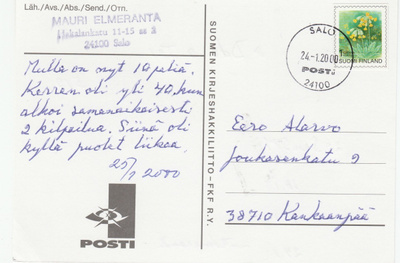 Läh./Avs./Abs./Send./Отп.
MAURI ELMERANTA
11-15 as 3
24100 Salo
Mulla on nyt 10 peliä.
Kerran oli yli 40, kun
alkoi samanaikaisesti
2 kilpailua. Siinä oli
kyllä puolet liikaa.
25/1 2000
POSTI
SUOMEN KIRJESHAKKILIITTO-FKF R.Y.
SALO
24.-1.2000
POSTI
24100
SUOMI FINLAND
Eero Alarvo
Joukasenkatu 9
38710 Kankaanpää